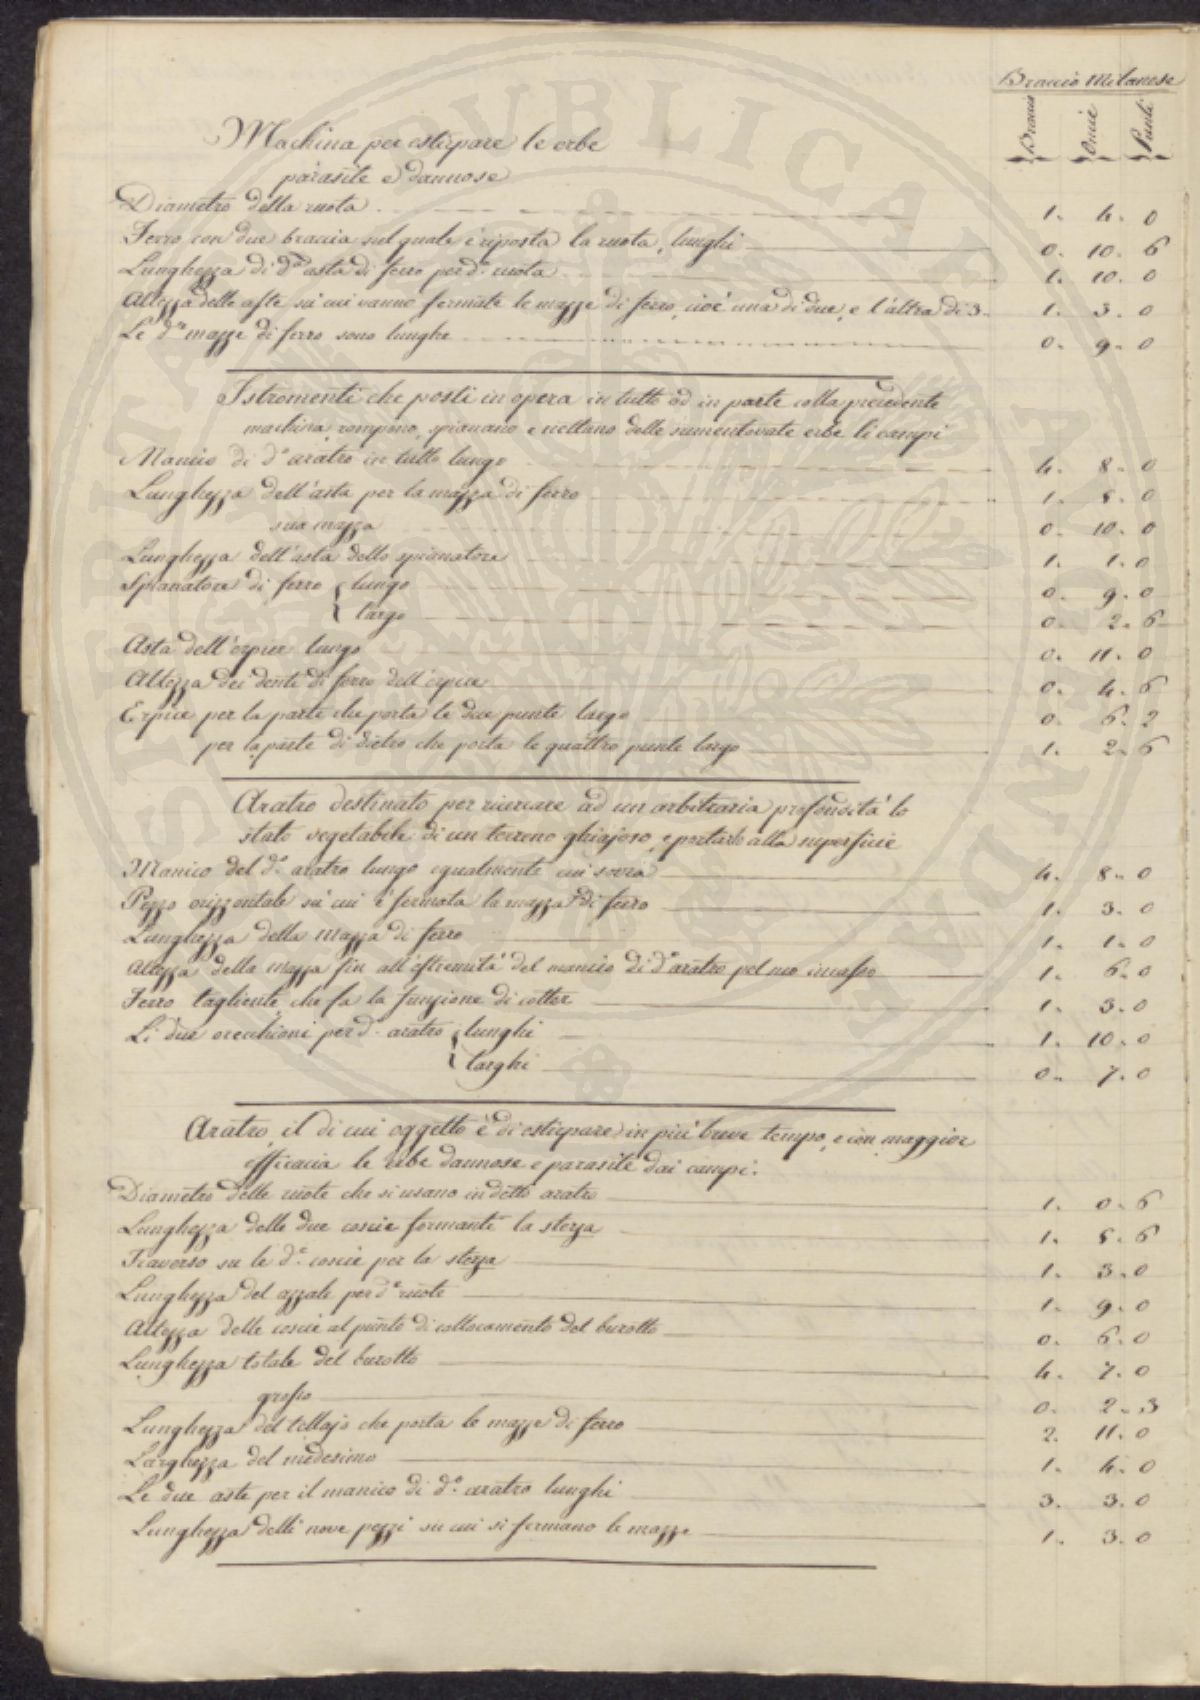 Braccio Milanese
Braccia Oncie Punti
Machina per estirpare le erbe
parasite e dannose
Diametro della ruota 1. 4. 0
Ferro con due braccia sul quale è riposta la ruota, lunghi 0. 10. 6
Lunghezza di d.ª asta di ferro per d.ª ruota 1. 10. 0
Altezza delle aste su cui vanno fermate le mazze di ferro, cioè una di due, e l'altra di 3. 1. 3. 0
Le d.e mazze di ferro sono lunghe 0. 9. 0
Istromenti che posti in opera in tutto od in parte colla precedente
machina, rompono, spianano e nettano delle sumentovate erbe li campi
Manico di d.º aratro in tutto lungo 4. 8. 0
Lunghezza dell'asta per la mazza di ferro 1. 8. 0
sua mazza 0. 10. 0
Lunghezza dell'asta dello spianatore 1. 1. 0
Spianatore di ferro { lungo 0. 9. 0
{ largo 0. 2. 6
Asta dell'erpice lunga 0. 11. 0
Altezza dei denti di ferro dell'erpice 0. 4. 6
Erpice per la parte che porta le due punte largo 0. 6. 2
per la parte di dietro che porta le quattro punte largo 1. 2. 6
Aratro destinato per ricercare ad un arbitraria profondità lo
stato vegetabile di un terreno ghiajoso, e portarlo alla superficie
Manico del d.º aratro lungo egualmente cui sovra 4. 8. 0
Pezzo orizzontale su cui è fermata la mazza di ferro 1. 3. 0
Lunghezza della mazza di ferro 1. 1. 0
Altezza della mazza fin all'estremità del manico di d.º aratro pel suo incasso 1. 6. 0
Ferro tagliente, che fa la funzione di colter 1. 3. 0
Li due orecchioni per d.º aratro { lunghi 1. 10. 0
{ larghi 0. 7. 0
Aratro, il di cui oggetto è di estirpare in più breve tempo, e con maggior
efficacia le erbe dannose e parasite dai campi.
Diametro delle ruote che si usano in detto aratro 1. 0. 6
Lunghezza delle due coscie formanti la sterza 1. 8. 6
Traverso su le d.e coscie per la sterza 1. 3. 0
Lunghezza del azzale per d.e ruote 1. 9. 0
Altezza delle coscie al punto di collocamento del burotto 0. 6. 0
Lunghezza totale del burotto 4. 7. 0
grosso 0. 2. 3
Lunghezza del tellajo che porta le mazze di ferro 2. 11. 0
Larghezza del medesimo 1. 4. 0
Le due aste per il manico di d.º aratro lunghi 3. 3. 0
Lunghezza delli nove pezzi su cui si fermano le mazze 1. 3. 0